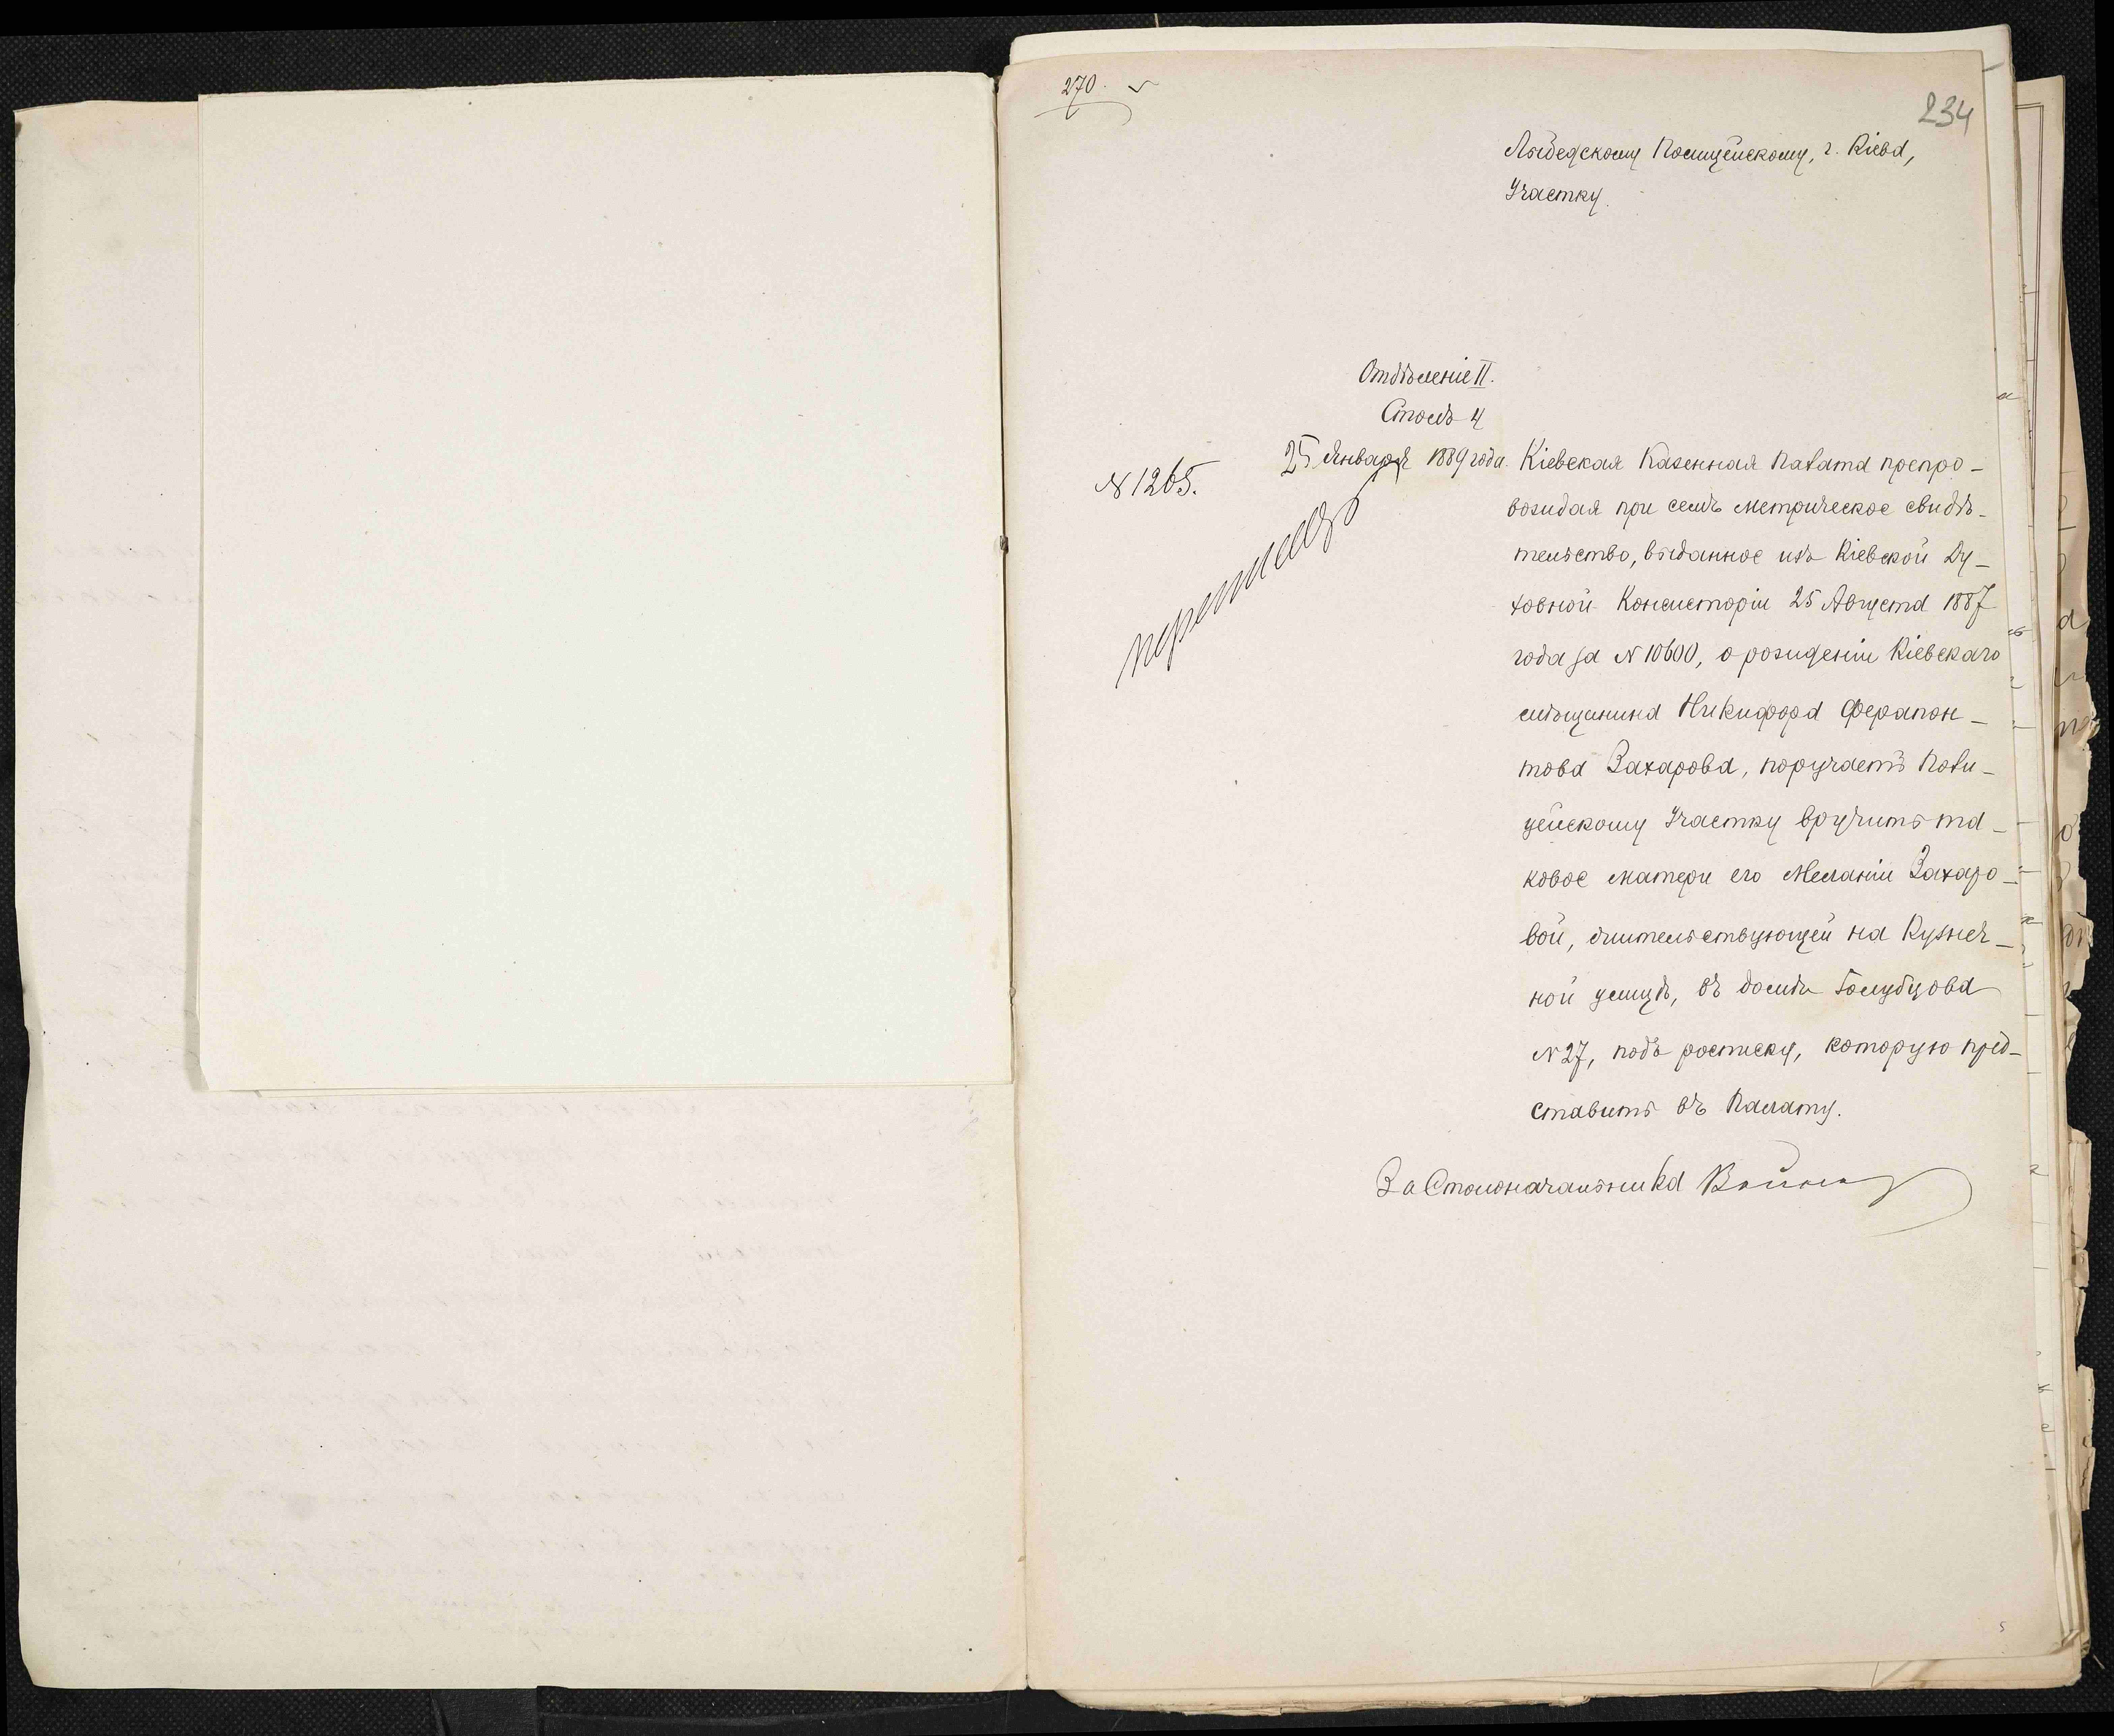 270.
234
Лыбедскому Полицейскому, г. Кіева,
Участку.
Отдѣленіе II.
Столъ 4
25 Января 1889 года.
N 1265.
Кіевская Казенная Палата препро-
вождая при семъ метрическое свидѣ-
тельство, выданное изъ Кіевской Ду-
ховной Консисторіи 25 Августа 1887
года за N 10600, о рожденіи Кіевскаго
мѣщанина Никифора Ферапон-
това Захарова, поручаетъ Поли-
цейскому Участку вручить та-
ковое матери его Меланіи Захаро-
вой, жительствующей на Кузнеч-
ной улицѣ, въ домѣ Голубцова
N 27, подъ росписку, которую пред-
ставить въ Палату.
За Столоначальника